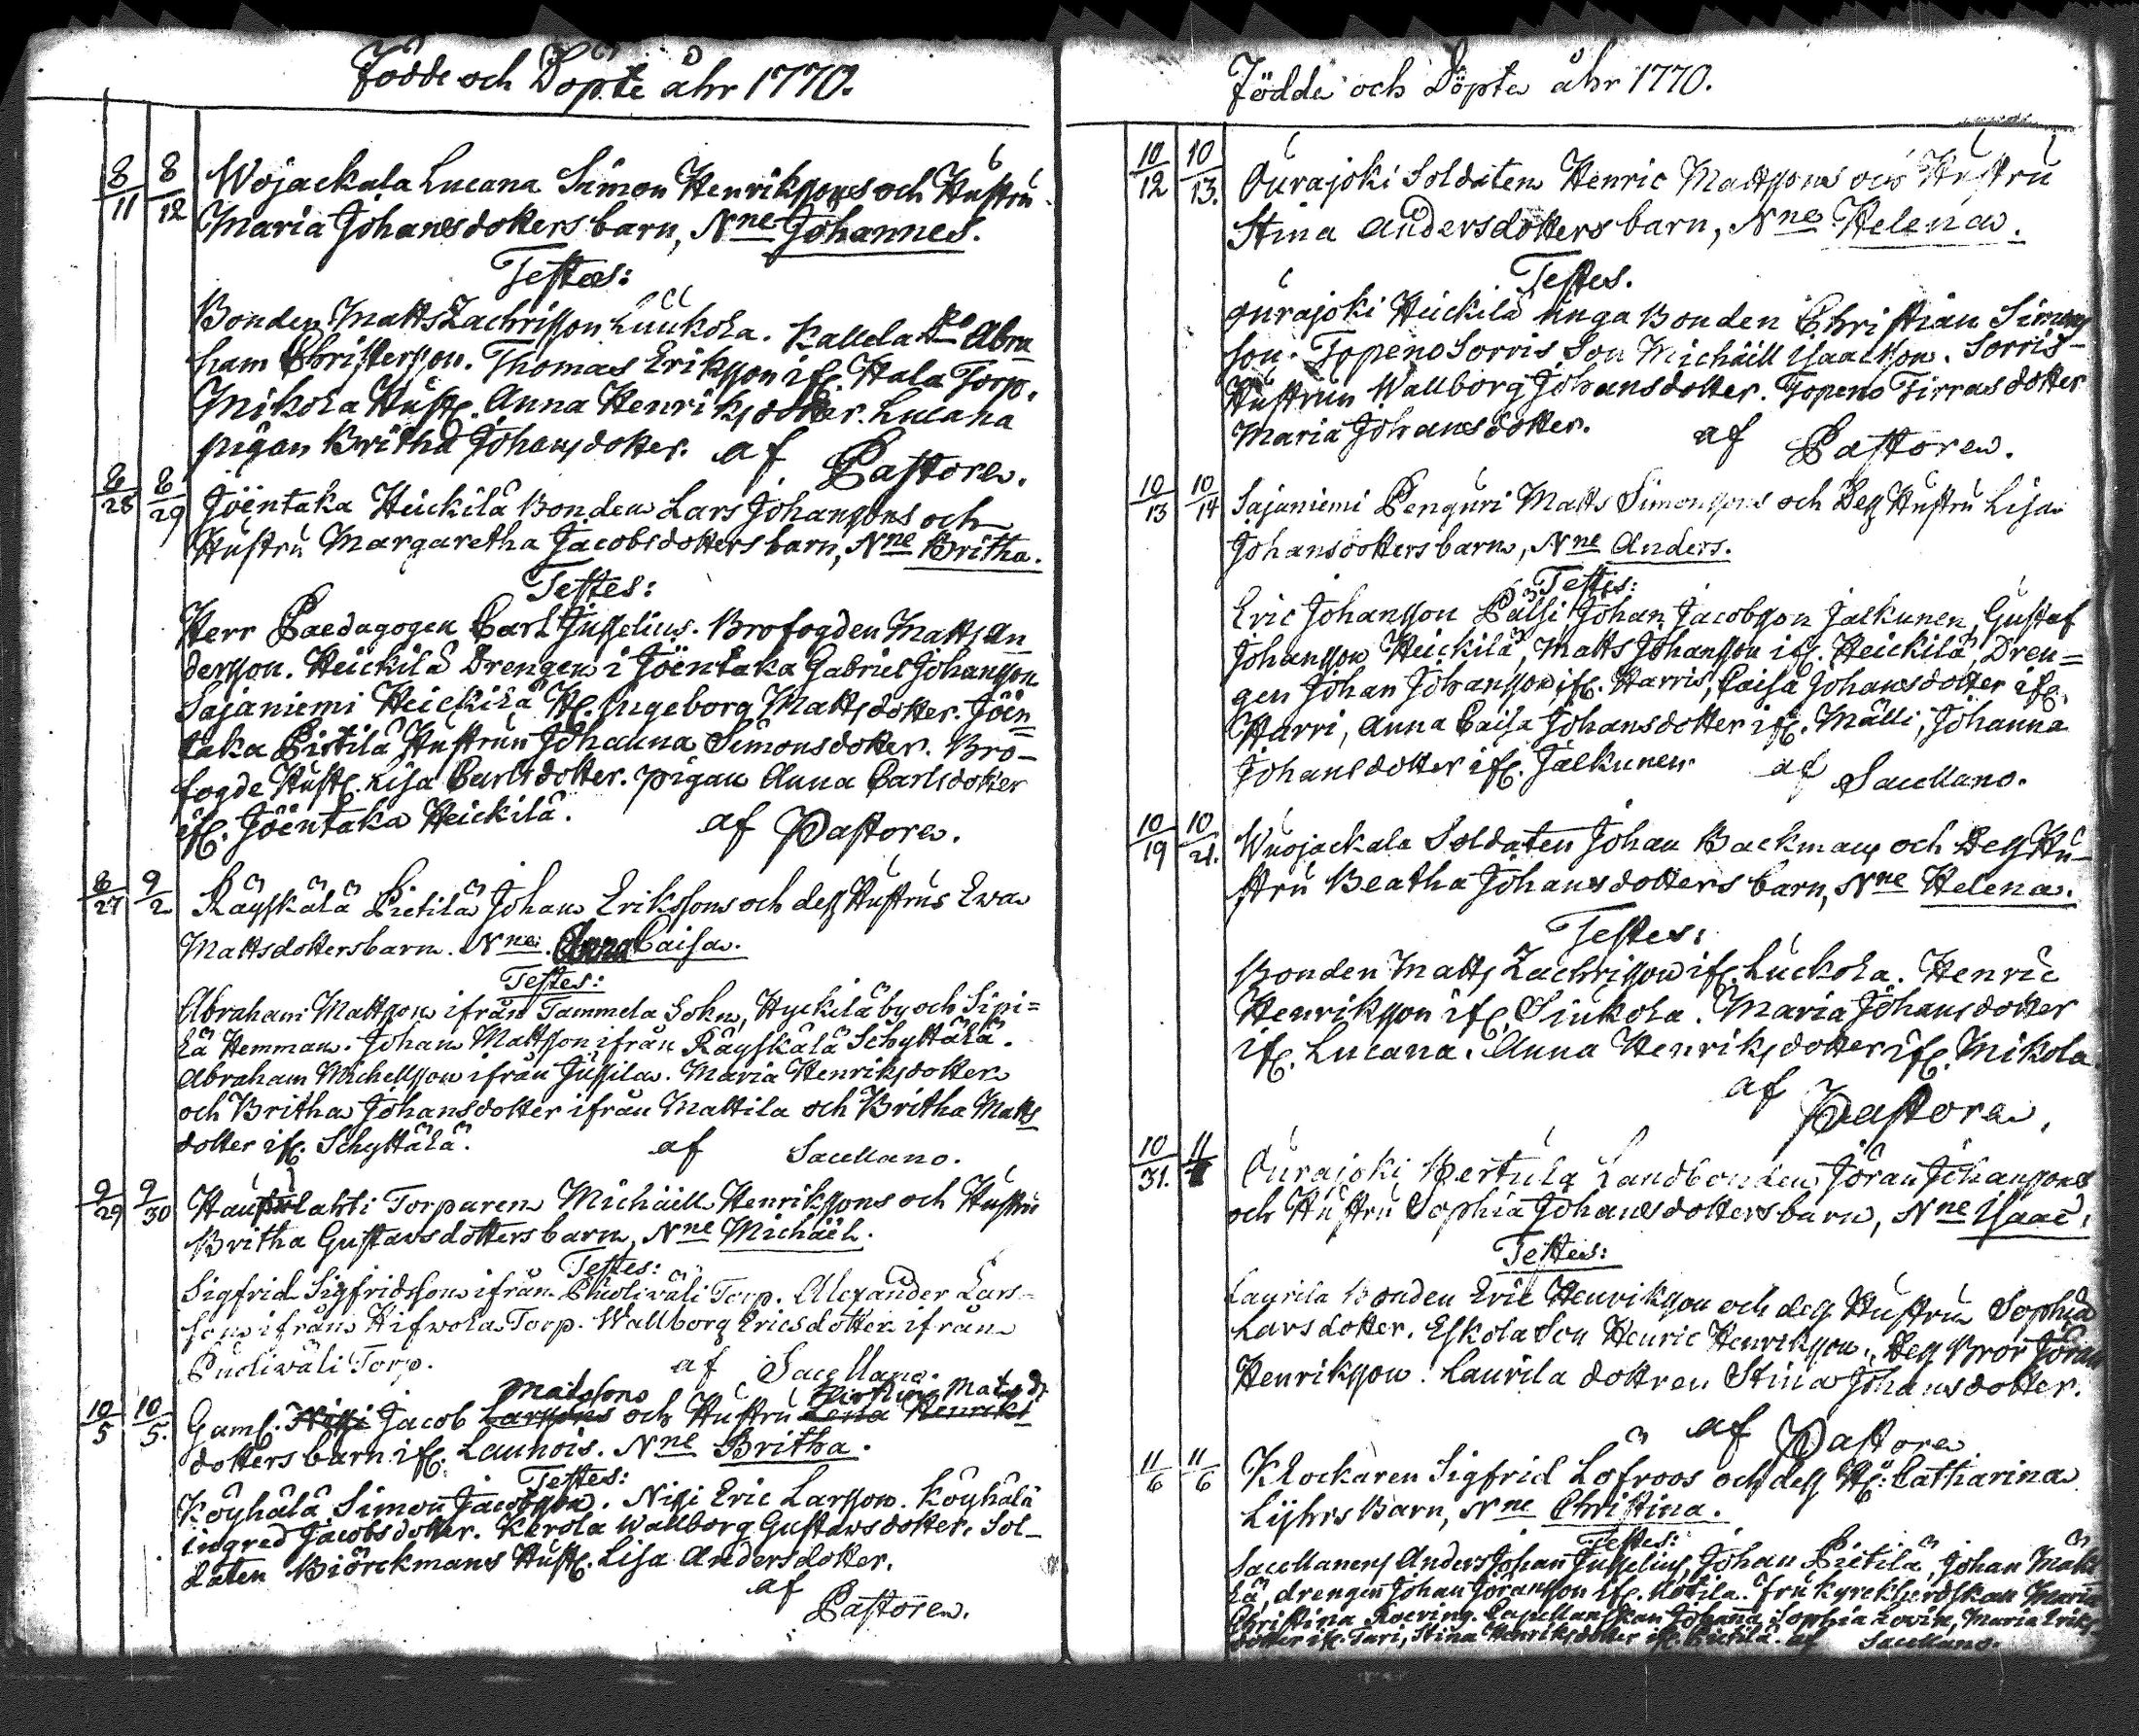 Födde och Döpte åhr 1770.
8/11 8/12 Wojackala Lucana Simon Henrikssons och Hustru
Maria Johansdotters barn, Nne Johannes.
Testes:
Bonden Matts Zachrisson Luukola. Kallela Abra
ham Christersson. Thomas Eriksson ifr. Hala Torp.
Mikola Hustr. Anna Henriksdotter. Lucana
pigan Britha Johansdotter. af Pastore.
8/28 8/29 Jöentaka Heickilä Bonden Lars Johanssons och
Hustru Margaretha Jacobsdotters barn, Nne Britha.
Testes:
Herr Paedagogen Carl Jusselius. Brofogden Matts An
dersson. Heickilä Drengen i Jöentaka Gabriel Johansson
Sajaniemi Heickilä H. Ingeborg Mattsdotter. Jöen
taka Pietilä Hustrun Johanna Simonsdotter. Bro-
fogde Hustr. Lisa Carlsdotter. pigan Anna Carlsdotter
ifr. Jöentaka Heickilä. af Pastore.
8/27 9/2 Räyskälä Pietilä Johan Erikssons och dess Hustrus Ewa
Mattsdotters barn. Nne. Caisa.
Testes:
Abraham Mattsson ifrån Tammela Sokn, Hyckilä by och Sipi=
lä Hemman. Johan Mattsson ifrån Räyskälä Schyttälä.
Abraham Michellsson ifrån Jussila. Maria Henriksdotter
och Britha Johansdotter ifrån Mattila och Britha Matts
dotter ifr. Schyttälä. af Sacellano.
9/29 9/30 lahti Torparen Michäill Henrikssons och Hustru
Britha Gustavsdotters barn, Nne Michäel.
Testes:
Sigfrid Sigfridsson ifrån Puoliwäli Torp. Alexander Lars-
son ifrån Hifwola Torp. Wallborg Ericsdotter ifrån
Puoliwäli Torp. af Sacellano.
Matssons Mats d
10/5 10/5. Gaml. Nissi Jacob Larssons och Hustru Lena Henriks
dotters barn ifr. Launois. Nne Britha.
Testes:
Köyhälä Simon Jacobsson. Nissi Eric Larsson. Köyhälä
ingred Jacobsdotter. Kerola Wallborg Gustavsdotter. Sol-
daten Biörckmans Hustr. Lisa Andersdotter.
af
Pastore.
Födde och Döpte åhr 1770.
10/12 10/13. Ourajoki Soldaten Henric Mattssons och Hustru
Stina Andersdotters barn, Nne Helena.
Testes.
Ourajoki Heickilä unga Bonden Christian Simons
son. Topeno Sorris Son Michäill Isaacsson. Sorris
Hustrun Wallborg Johansdotter. Topeno Tirras dotter
Maria Johansdotter. af Pastore.
10/13 10/14 Sajaniemi Penguri Matts Simonssons och Dess Hustru Lisa
Johansdotters barn, Nne Anders.
Testes:
Eric Johansson Pälsi Johan Jacobsson Jalkunen, Gustaf
Johansson Heickilä, Matts Johansson ifr. Heickilä, Dren=
gen Johan Johansson ifr. Harris, Caisa Johansdotter ifr.
Harri, Anna Caisa Johansdotter ifr. Mälli, Johanna
Johansdotter ifr. Jalkunen af Sacellano.
10/19 10/21. Wuojackala Soldaten Johan Backmans och Dess Hu-
stru Beatha Johansdotters barn, Nne Helena.
Testes:
Bonden Matts Zachrisson ifr. Luckola. Henric
Henriksson ifr. Siukola. Maria Johansdotter
ifr. Lucana. Anna Henriksdotter ifr. Mikola
af
Pastore.
10/31. 11/ Ourajoki Pertula Landbonden Jöran Johanssons
och Hustru Sophia Johansdotters barn, Nne Isaac.
Testes:
Laurila Bonden Eric Henriksson och dess Hustru Sophia
Larsdotter. Eskola Son Henric Henriksson, Dess Bror Jöran
Henriksson. Laurila dottren Stina Johansdotter.
af Pastore
11/6 11/6 Klockaren Sigfrid Löfroos och dess H: Catharina
Lijhrs Barn, Nne Christina.
Testes:
Sacellanens Anders Johan Jusselius, Johan Pietilä, Johan
lä, drengen Johan Jöransson ifr. Fru Kyrckherdskan Maria
Christina Roering. Capellanskan Johanna Sophia Lovin, Maria Eriks-
dotter ifr. Tari, Stina Henriksdotter ifr. Pietilä. af Sacellano.